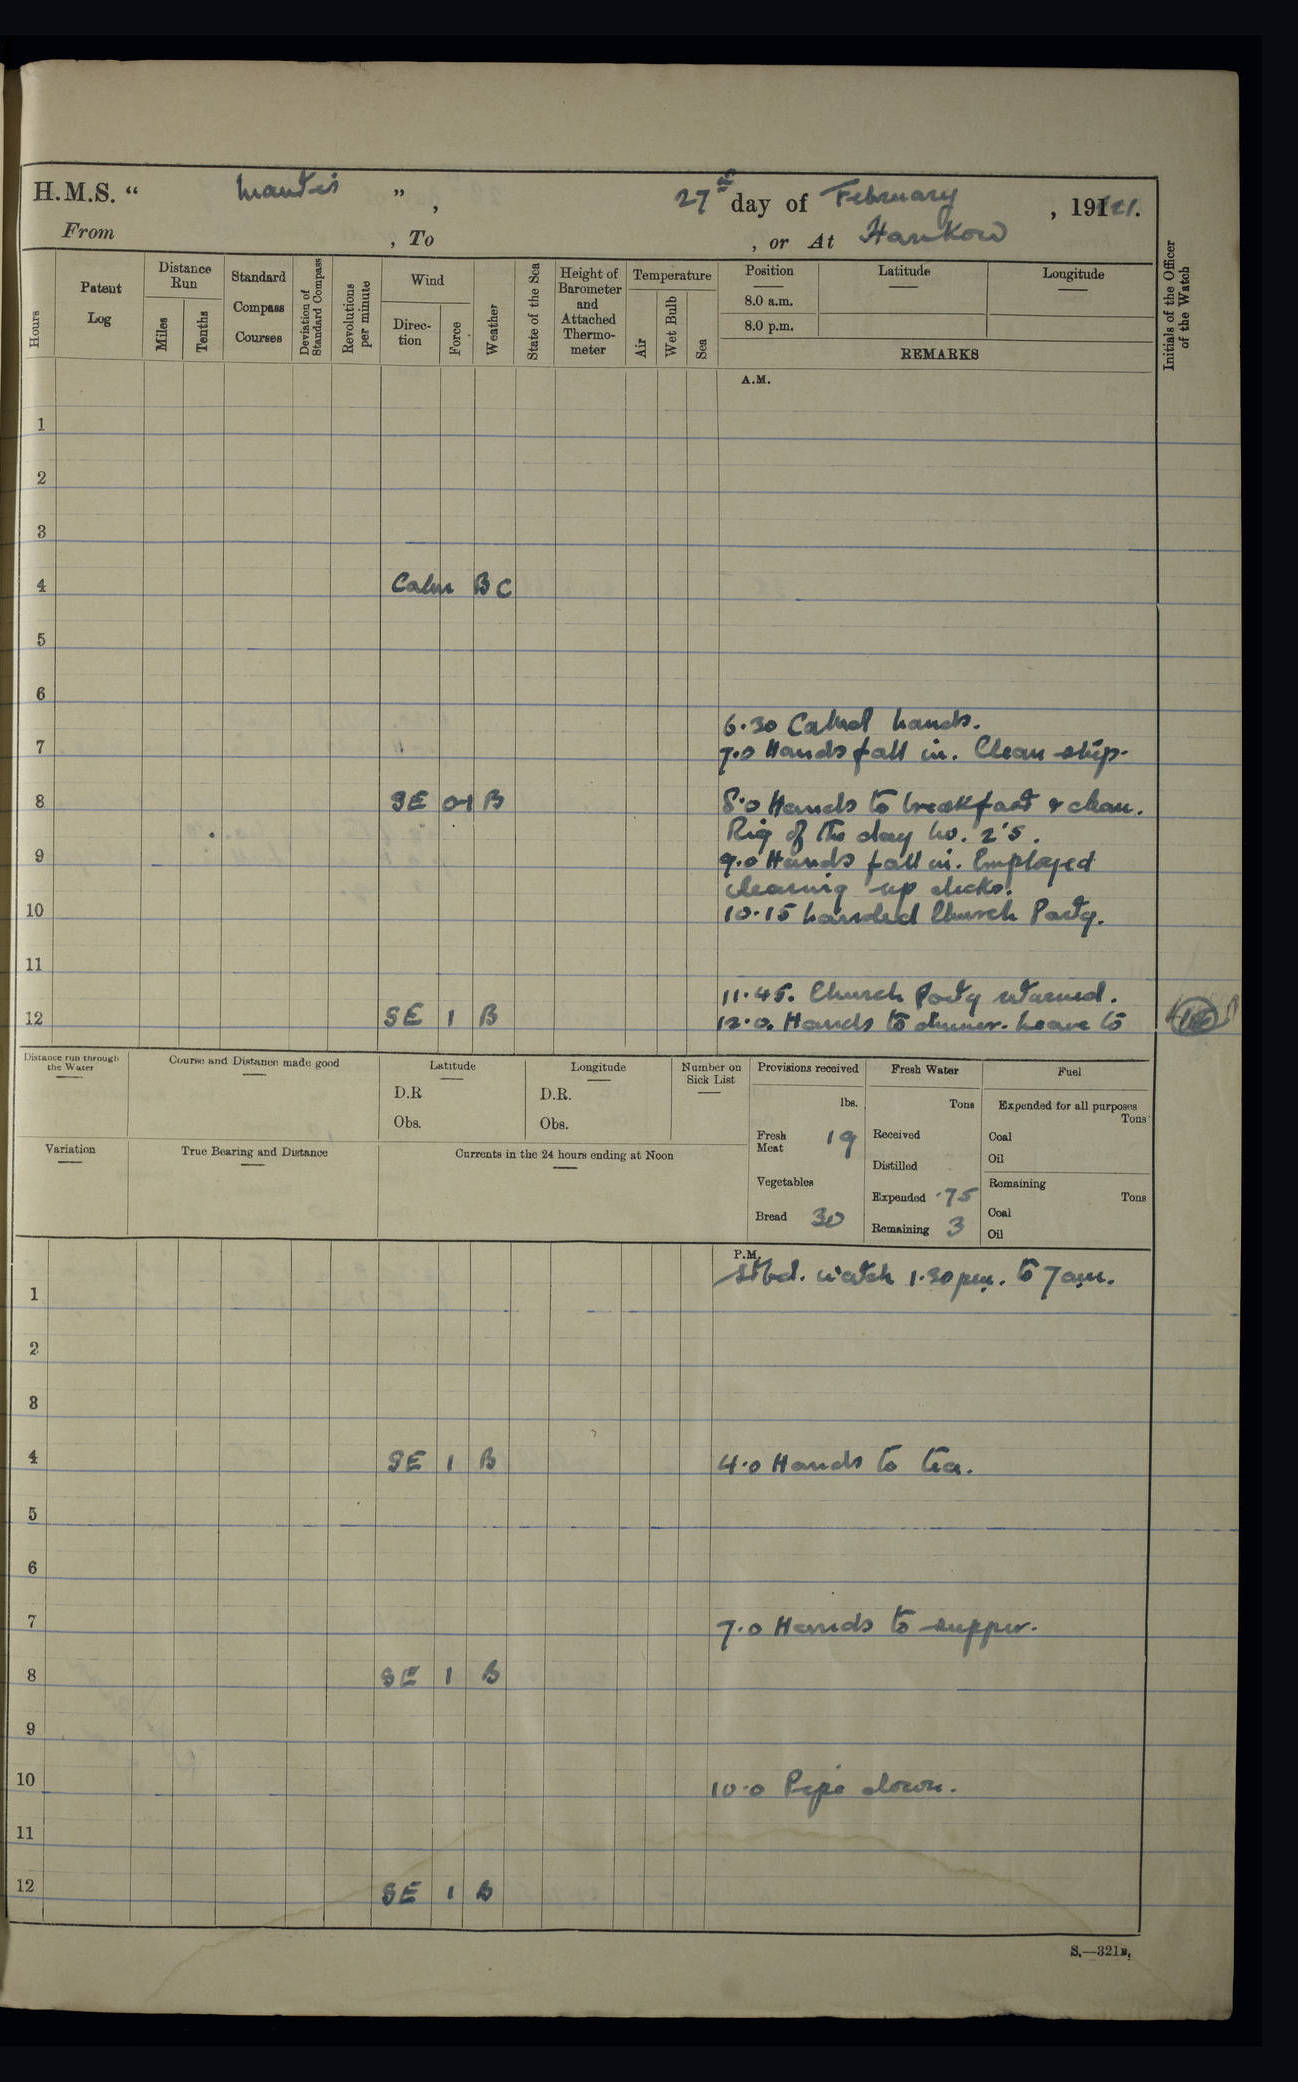 H.M.S. “ Mantis ” , 27th day of February , 1921.
From , To , or At Hankow
Hours
Patent Log
Distance Run
Miles
Tenths
Standard Compass Courses
Deviation of Standard Compass
Revolutions per minute
Wind
Direc-tion
Force
Weather
State of the Sea
Height of Barometer and Attached Thermo-meter
Temperature
Air
Wet Bulb
Sea
Position
8.0 a.m.
8.0 p.m.
Latitude
Longitude
REMARKS
Initials of the Officer of the Watch
A.M.
1
2
3
4 Calm BC
5
6
6.30 Called hands.
7 7.0 Hands fall in. Clean ship.
8 SE 0-1 B 8.0 Hands to breakfast & clean.
Rig of the day No. 2's.
9 9.0 Hands fall in. Employed
cleaning up decks.
10 10.15 Landed Church Party.
11
11.45. Church Party returned.
12 SE 1 B 12.0. Hands to dinner. Leave to
Distance run through the Water
Course and Distance made good
Latitude
D.R
Obs.
Longitude
D.R.
Obs.
Number on Sick List
Provisions received
lbs.
Fresh Meat 19
Vegetables
Bread 30
Fresh Water
Tons
Received
Distilled
Expended .75
Remaining 3
Fuel
Expended for all purposes
Tons
Coal
Oil
Remaining
Tons
Coal
Oil
Variation
True Bearing and Distance
Currents in the 24 hours ending at Noon
P.M.
Stbd. watch 1.30 pm. to 7 am.
1
2
3
4 SE 1 B 4.0 Hands to tea.
5
6
7 7.0 Hands to supper.
8 SE 1 B
9
10 10.0 Pipe down.
11
12 SE 1 B
S.—321B.